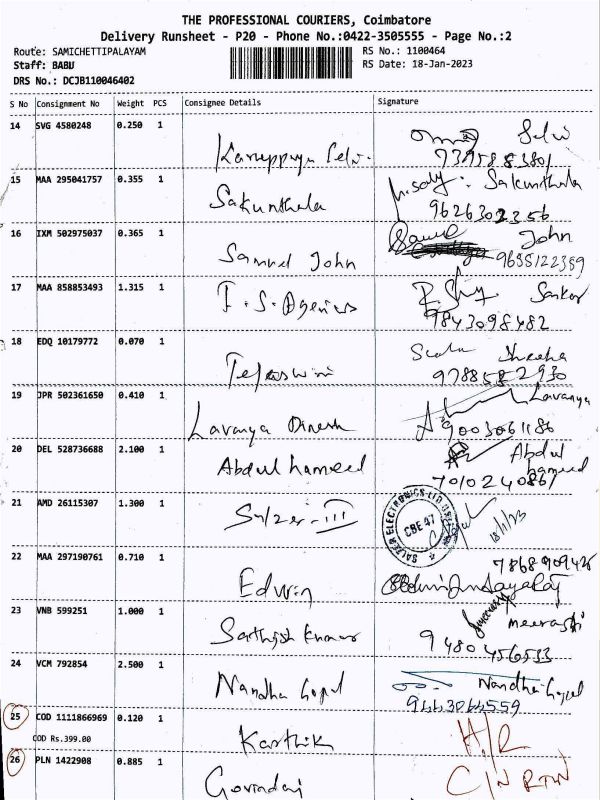 THE PROFESSIONAL COURIERS, Coimbatore
Delivery Runsheet - P20 - Phone No.:0422-3505555 - Page No.:2
Route: SAMICHETTIPALAYAM RS No.: 1100464
Staff: BABU RS Date: 18-Jan-2023
DRS No.: DCJB110046402
S No Consignment No Weight PCS Consignee Details Signature
14 SVG 4580248 0.250 1
Karuppaya Selvi Selvi
15 MAA 295041757 0.355 1
Sakunthala Sakunthala
9626302356
16 IXM 502975037 0.365 1
Samuel John John
9698122389
17 MAA 858853493 1.315 1
F.S. Agencies Sankar
9843098482
18 EDQ 10179772 0.070 1
Tejaswini
9788582930
19 JPR 502361650 0.410 1
Lavanya Dinesh Lavanya
9003061186
20 DEL 528736688 2.100 1
Abdul hameed Abdul hameed
7010240861
21 AMD 26115307 1.300 1
Salzer-III SALZER ELECTRONICS LTD CBE 47 18/1/23
22 MAA 297190761 0.710 1
7868909426
Edwin
23 VNB 599251 1.000 1
Sathish Kumar
9480456533
24 VCM 792854 2.500 1
Nandha Gopal Nandha Gopal
9443064559
25 COD 1111866969 0.120 1
COD Rs.399.00
Karthik H/R
26 PLN 1422908 0.885 1
Govindaraj C/N RTN